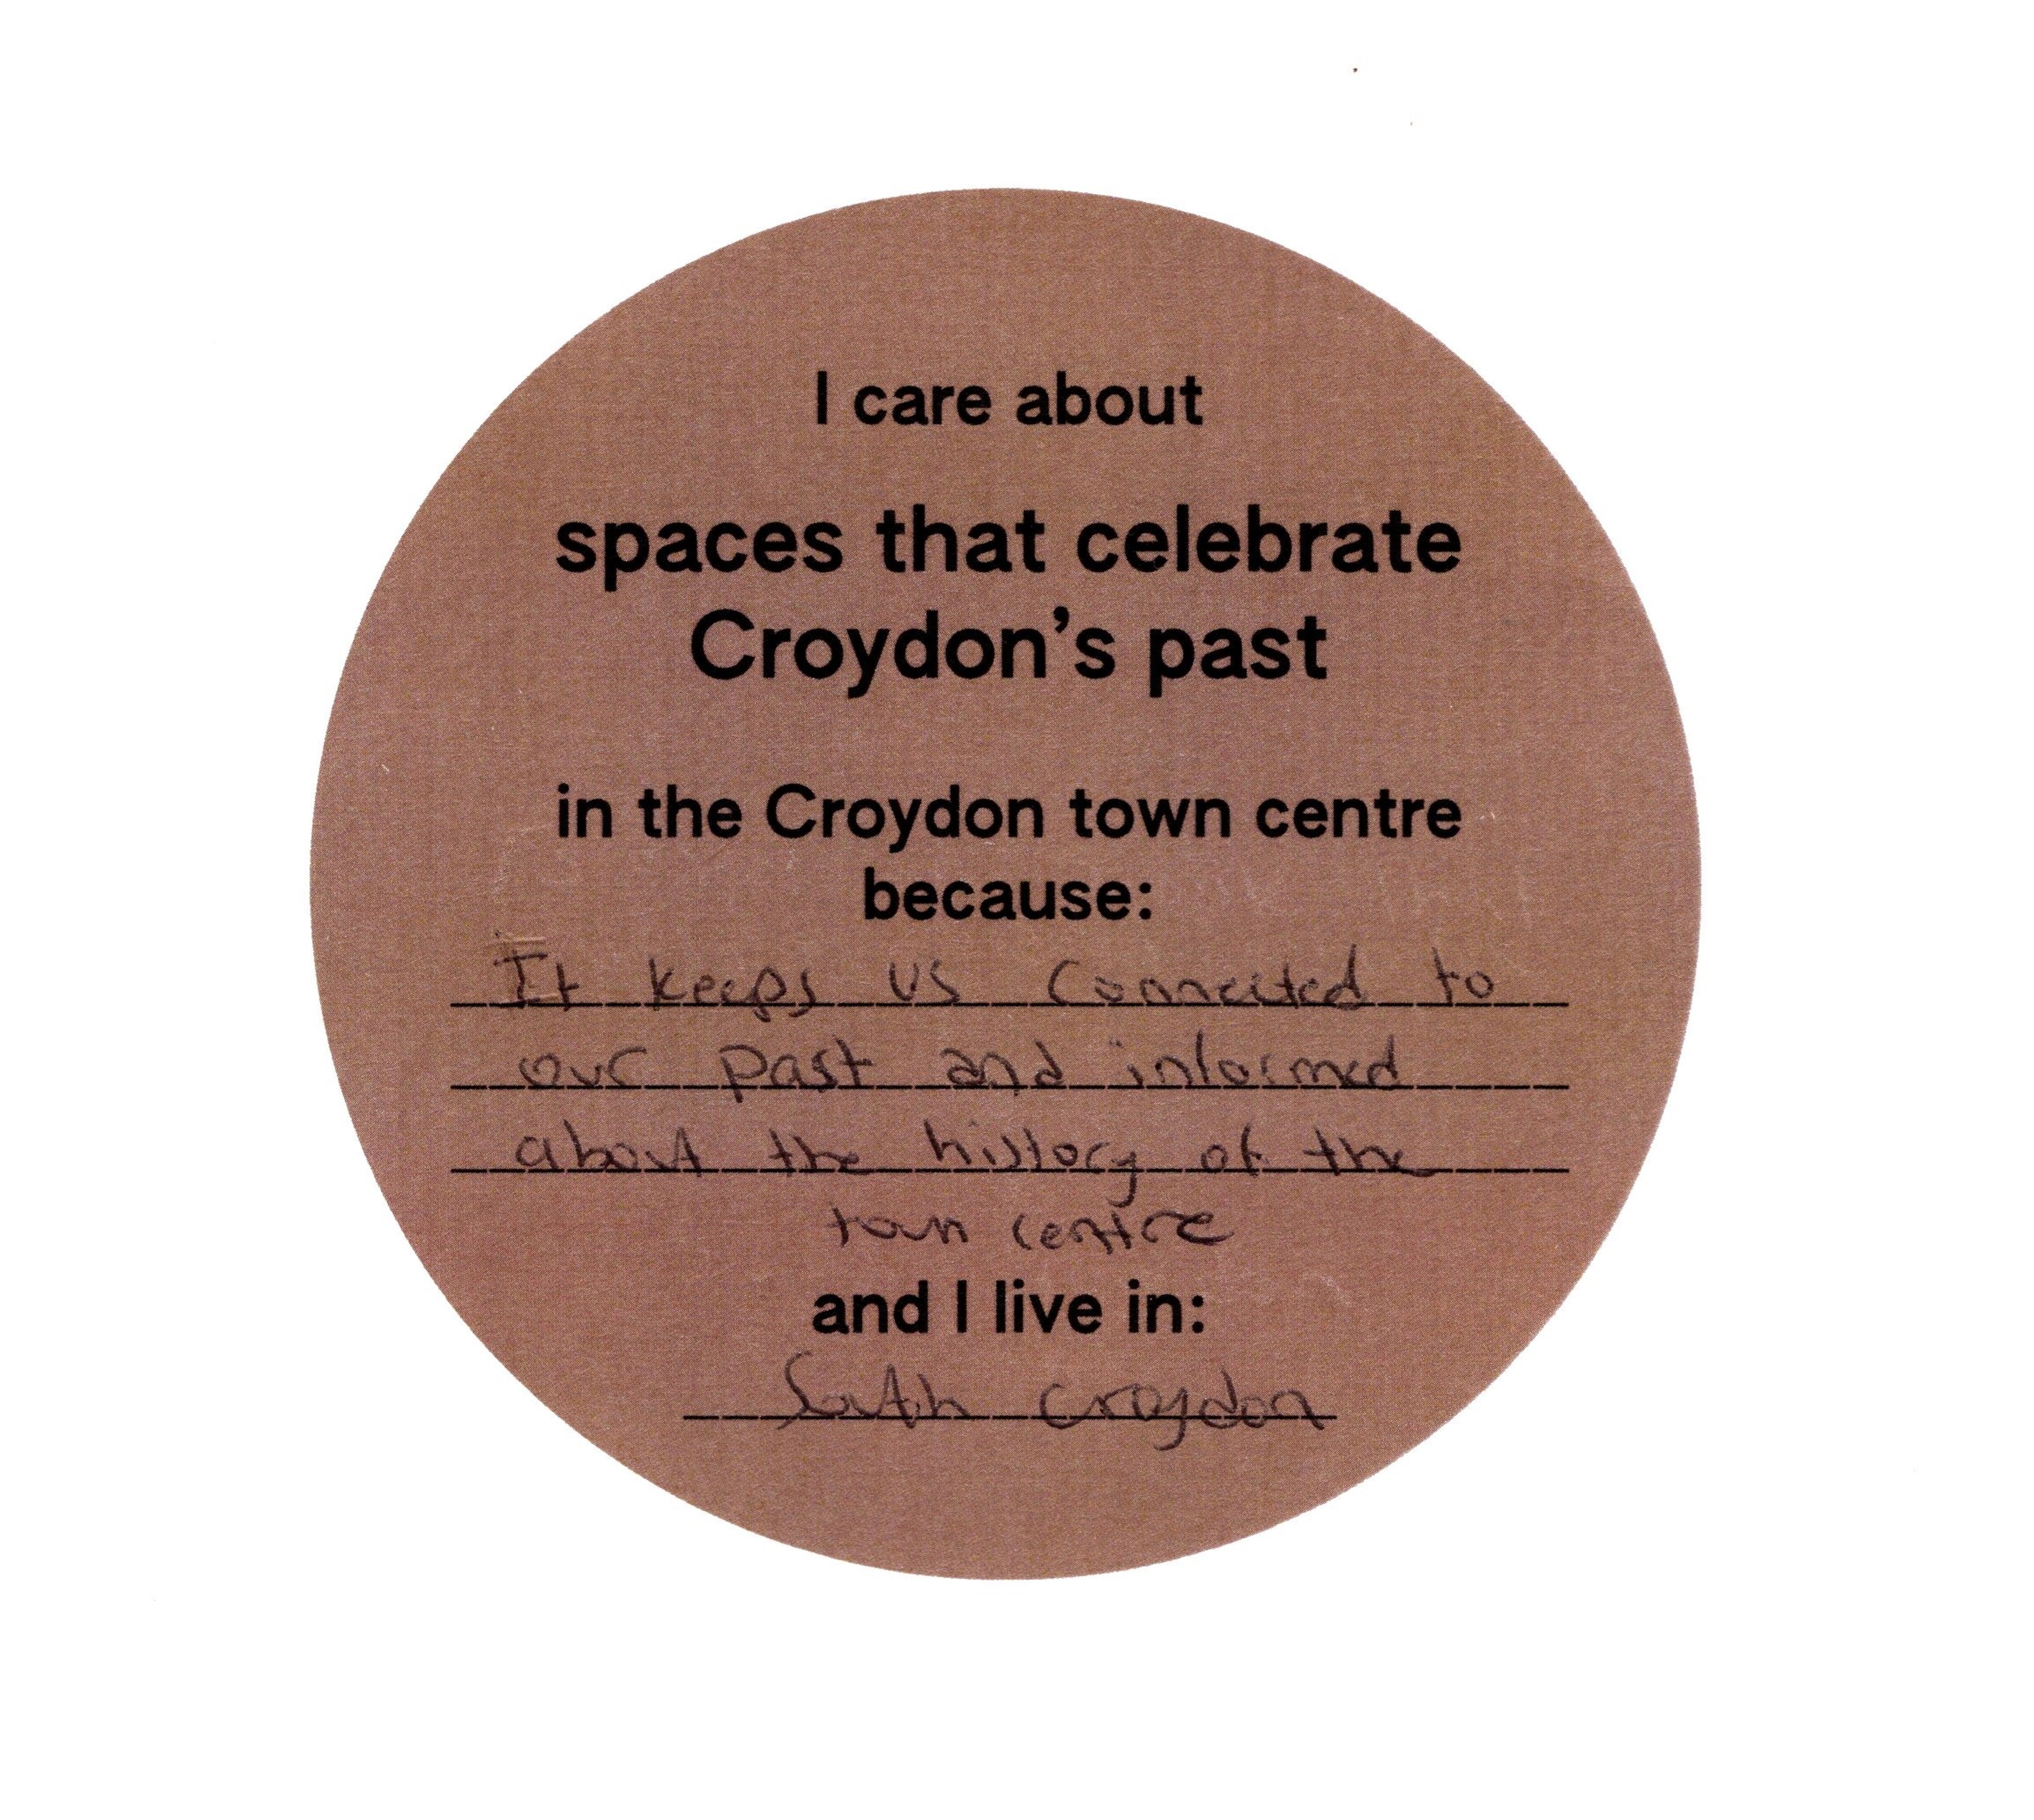 I care about
spaces that celebrate
Croydon's past
in the Croydon town centre
because:
It keeps us connected to
our past and informed
about the history of the
town centre
and I live in:
South Croydon